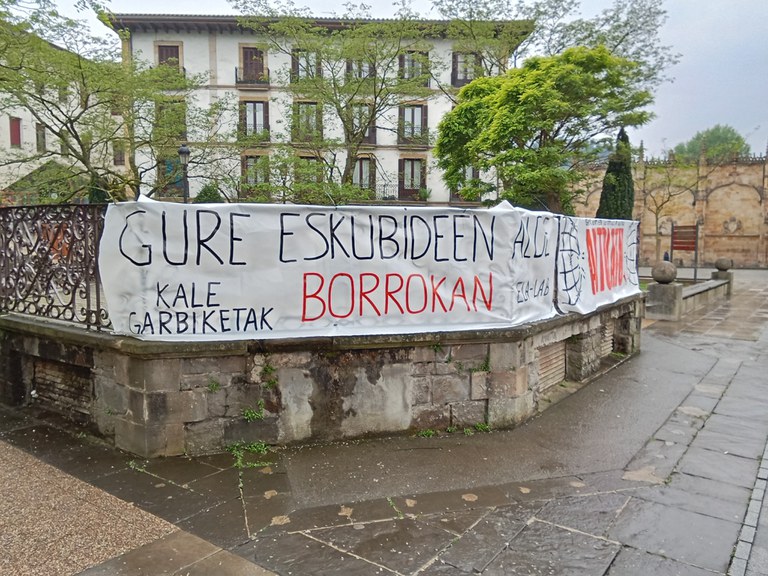 GURE ESKUBIDEEN ALDE
KALE
GARBIKETAK
BORROKAN
ELA-LAB